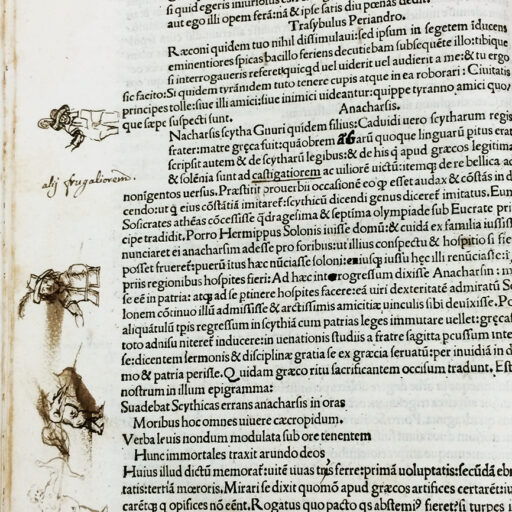 si quid egeris iniuriosi
aut ego illi opem ferā:nā & ipse saris diu pœnas dedit.
Trasybulus Periandro.
Ræconi quidem tuo nihil dissimulaui:sed ipsum in segetem īducens
eminentiores spicas bacillo feriens decutiebam subsequēte illo:tibique
si interrogaueris referet quicqd uel uiderit uel audierit a me:& tu ergo
sic facito:Si quidem tyrānidem tuto tenere cupis atque in ea roborari : Ciuitatis
principes tolle:siue illi amici:siue inimici uideantur:quippe tyranno amici quoq
que sæpe suspecti sunt.
Anacharsis.
Nacharsis scytha Gnuri quidem filius:Caduidi uero scytharum regis
frater:matre græca fuit:quāobrem ābarū quoque linguarū pitus erat
scripsit autem & de scytharū legibus:& de his q̄ apud græcos legitima
& solēnia sunt ad castigatiorem ac uiliorē uictū:itemq; de re bellica ad
alij frugaliorem.
noningentos uersus. Præstitit prouerbii occasionē eo q esset audax & cōstās in di
cendo:ut q eius cōstātiā imitaret:scythicū dicendi genus diceret imitatus. Eum
Sosicrates athēas cōcessisse qdragesima & septima olympiade sub Eucrate prī
cipe tradidit. Porro Hermippus Solonis iuisse domū:& cuidā ex familia iussisse
nunciaret ei anacharsim adesse pro foribus:ut illius conspectu & hospitio si fieri
posset frueret:puerū itus hæc nūciasse soloni:eiusq iussu hęc illi renūciasse:
priis regionibus hospites fieri:Ad hæc interogressum dixisse Anacharsin : m
se eē in patria: atq ad se ptinere hospites facere:eā uiri dexteritatē admiratū So
lonem cōtinuo illū admisisse & arctissimis amicitiæ uinculis sibi deuixisse. Po
aliquātulū tpis regressum in scythiā cum patrias leges immutare uellet:gręcaq
toto adnisu niteret inducere:in uenationis studiis a fratre sagitta pcussum inter
se:dicentem sermonis & disciplinæ gratia se ex græcia seruatū:per inuidiā in do
mo & patria perisse. Quidam græco ritu sacrificantem occisum tradunt. Est
nostrum in illum epigramma:
Suadebat Scythicas errans anacharsis in oras
Moribus hoc omnes uiuere cæcropidum.
Verba leuis nondum modulata sub ore tenentem
Hunc immortales traxit arundo deos
Huius illud dictū memorat:uitē uuas tris ferre:primā uoluptatis:secūdā ebri
tatis:tertiā mœroris. Mirari se dixit quomō apud græcos artifices certarēt:iu
carētq q opifices nō eēnt. Rogatus quo pacto qs abstemi9 fieret?si turpes i